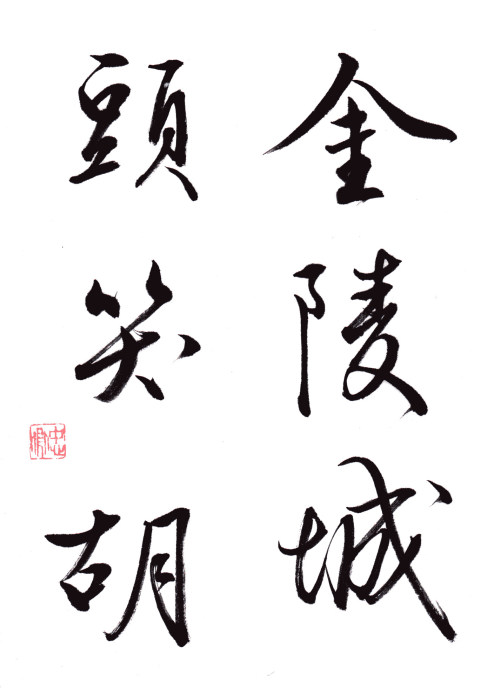 金陵城
頭笑胡